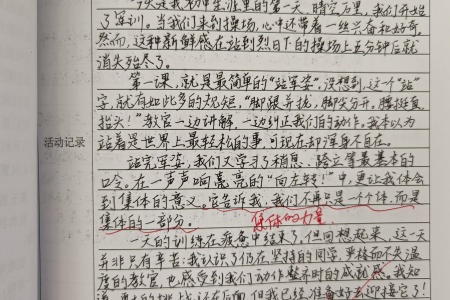 今天是我初中生涯里的第一天,晴空万里,我们开始
了军训。当我们来到操场,心中还带着一丝兴奋和好奇。
然而,这种新鲜感在站到烈日下的操场上五分钟后就
消失殆尽了。
第一课,就是最简单的“站军姿”。没想到,这个“站”
字,就有如此多的规矩,“脚跟并拢,脚尖分开,腰挺直,
抬头!”教官一边讲解,一边纠正我们的动作。我本以为
活动记录
站着是世界上最轻松的事,可现在却浑身不自在。
站完军姿,我们又学习了稍息、跨立等最基本的
口令。在一声声响亮亮的“向左转!”中,更让我体会
到集体的意义。它告诉我,我们不再只是一个个体,而是
集体的一部分。
集体的力量
一天的训练在疲惫中结束了,但回想起来,这一天
并非只有辛苦:我认识了仍在坚持的同学,严格而不失温
度的教官,也感受到我们动作整齐时的成就感。我知
道,更大的挑战还在后面,但我已经准备好去迎接它了!